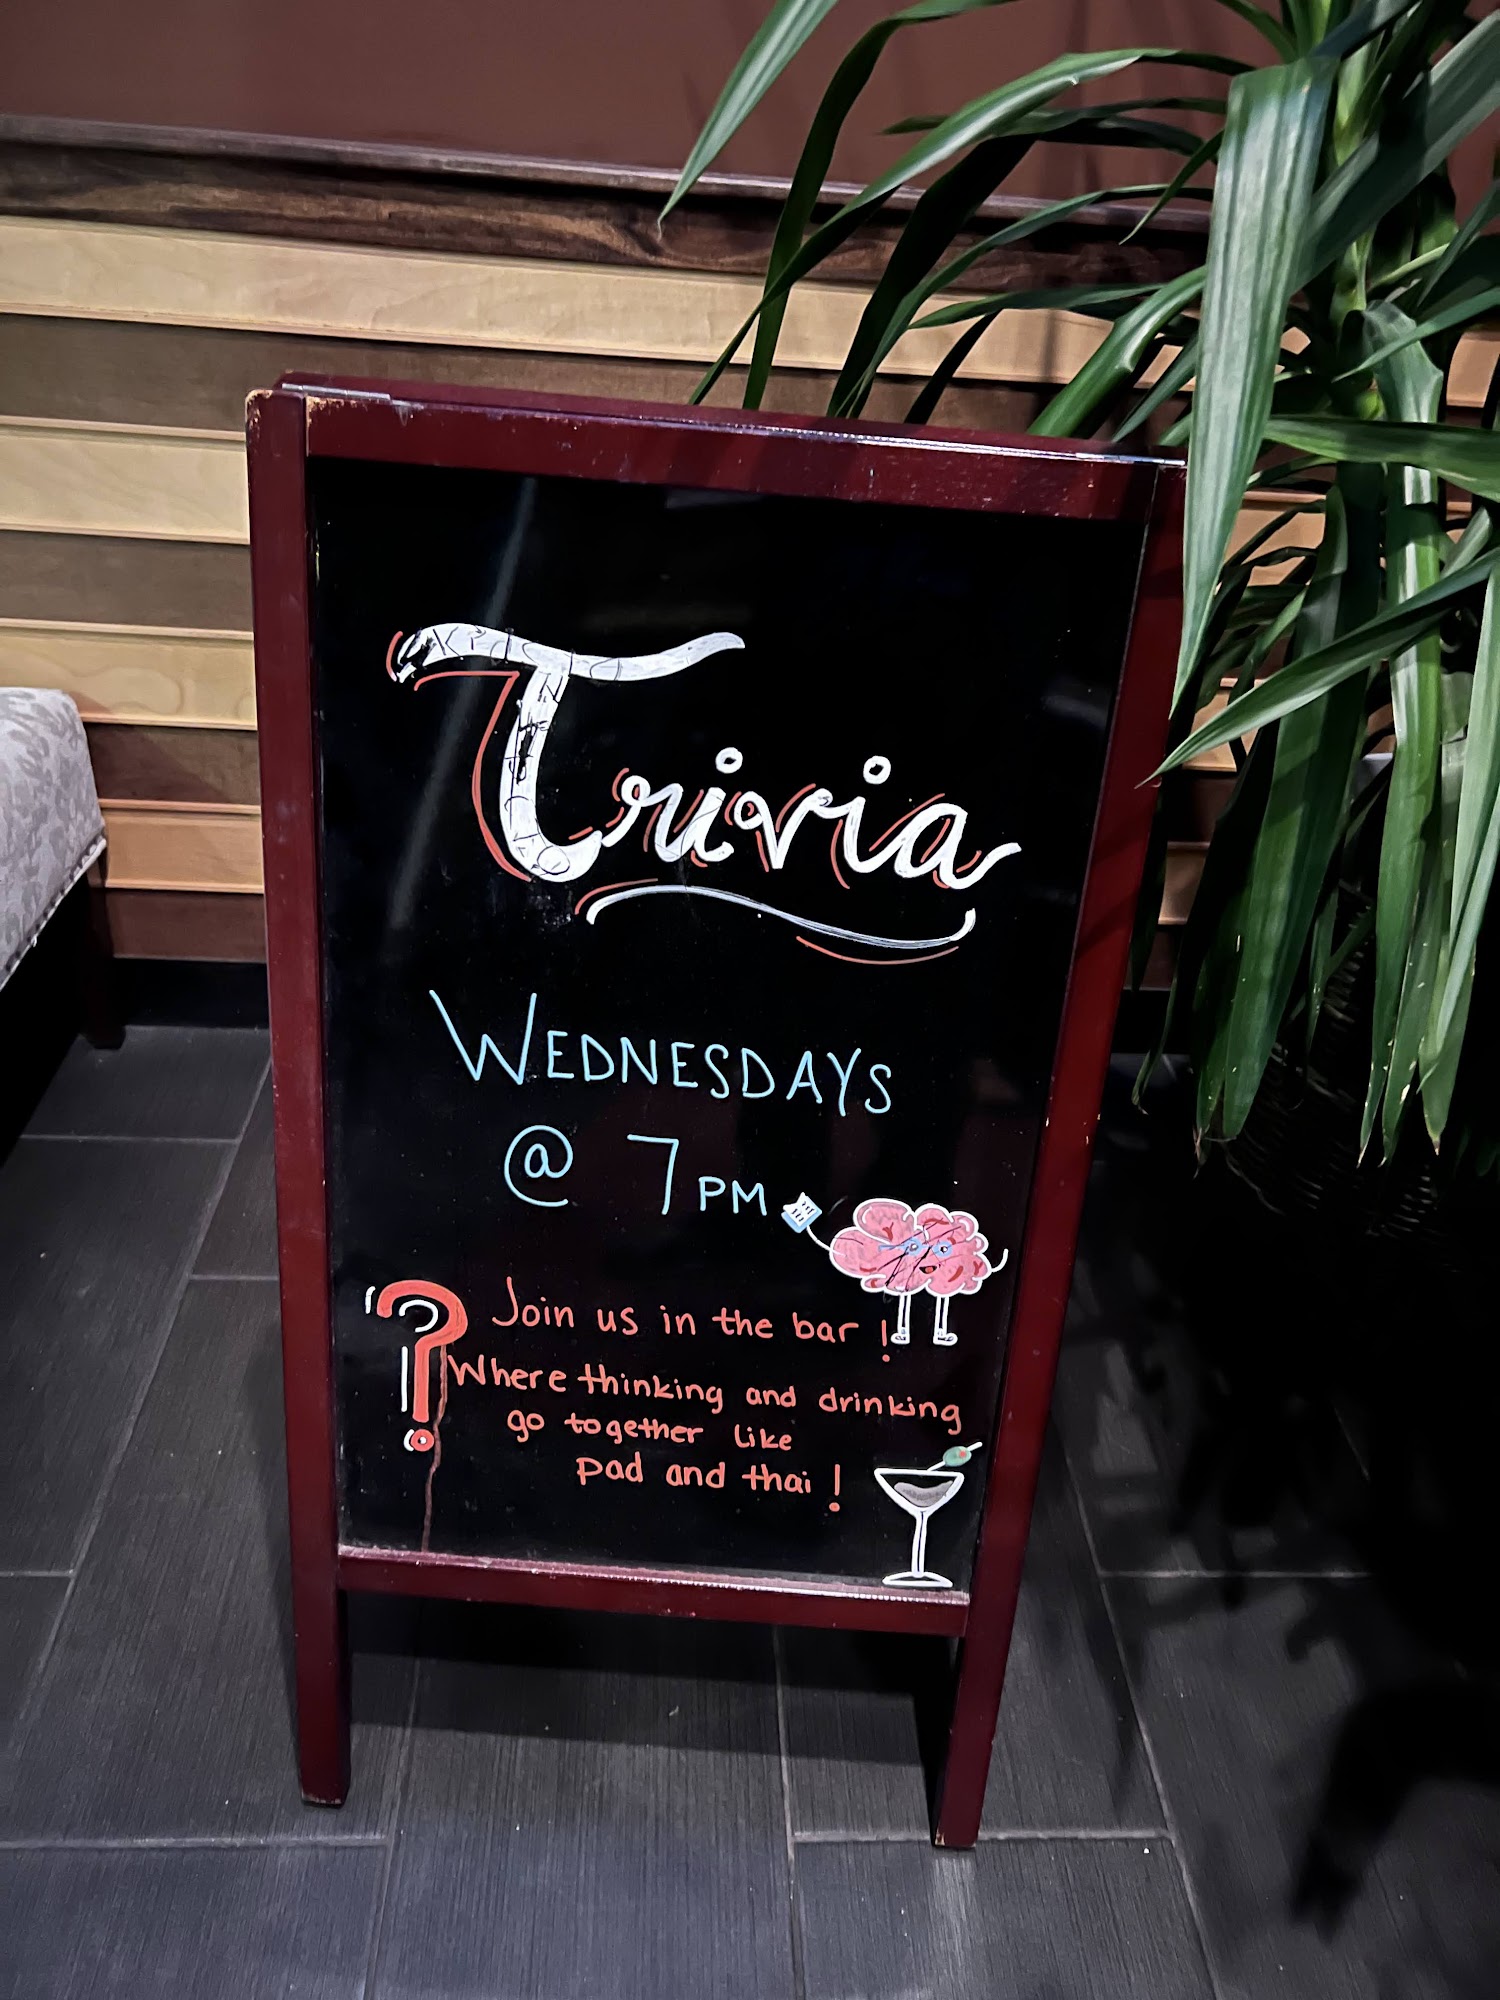 Trivia
WEDNESDAYS
@ 7PM
Join us in the bar!
Where thinking and drinking
go together like
pad and thai!
?